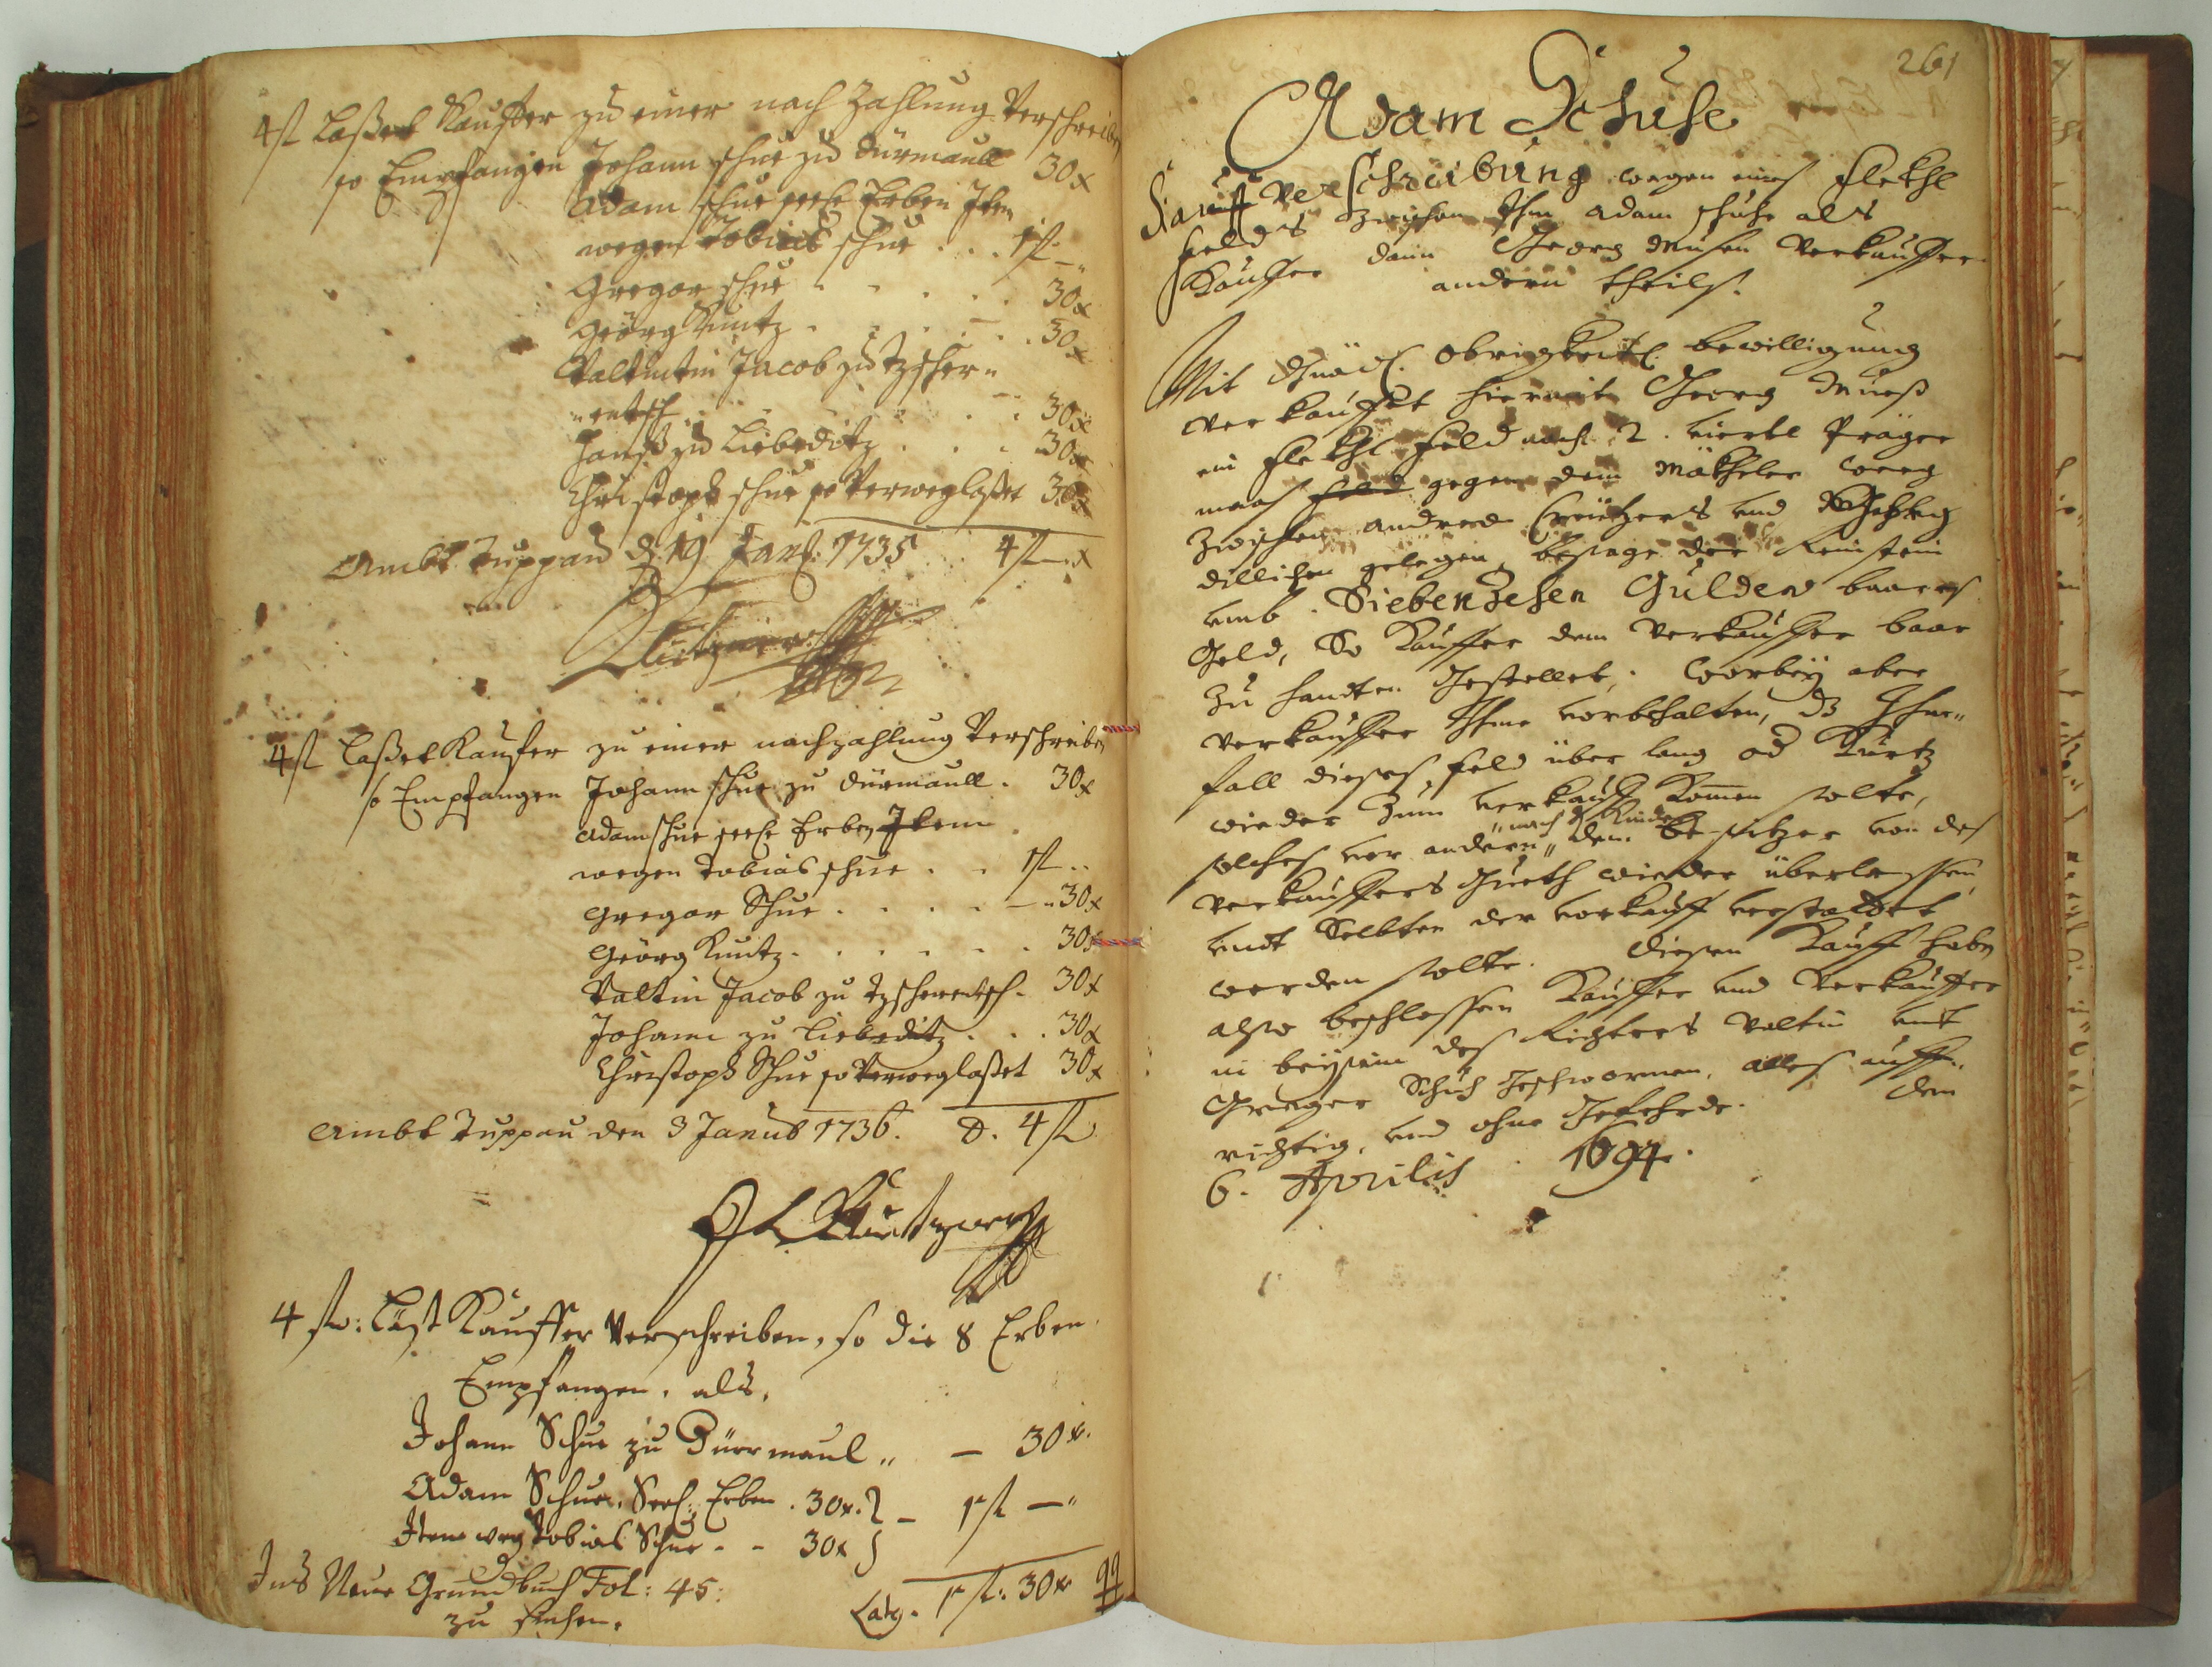 4 fl Laßet Kauffer zu einer nach Zahlung Verschreiben
so Empfangen Johann schue zu dürmaull 30 x
Adam schue seel: Erben Item
wegen Tobias schue . . . 1 fl —„
Gregor schue . . . . . 30 x
Georg Kuntz . . . . . 30 x
Valtintin Jacob zu Tzscher„
„nentsch . . . . 30 x
Hanß zu Liebeditz . . . 30 x
Christoph schue so Verweglaßet 30 x
Ambt Tuppau d. 19 Jan: 1735 . . 4 fl — x
4 fl Laßet Kaufer zu einer nachzahlung Verschreiben
so Empfangen Johann schue zu dürmaull . 30 x
Adam schue seel: Erben Item
wegen Tobias schue . . 1 fl „
Gregor Schue . . . . — „ 30 x
Georg Kuntz . . . . . 30 x
Valtin Jacob zu Tzschernentsch . 30 x
Johann zu Liebeditz . . . 30 x
Christoph Schue so Verweglaßet 30 x
Ambt Tuppau den 3 Januar 1736. 4 fl
4 fl: Läst Kauffer Verschreiben, so die 8 Erben
Empfangen, als,
Johann Schue zu Dürrmaul „ — 30 x.
Adam Schue, Seel: Erben . 30 x. } — 1 fl —„
Item weg Tobias Schue - - 30 x }
Ins Neue Grundbuch Fol: 45: Latg. 1 fl: 30 x
zu sehen.
261
Adam Schuhe
Kauff Verschreibung wegen eines flekhl
feldes zwischen Ihm Adam schuhe als
Kauffer dann Georg Musen Verkauffer
andern theils.
Mit Gnäd: Obrigkeitl: bewilligung
verkauffet hiermit Georg Mueß
ein flekhl feld auf 2 . viertl Präger
maas gegen dem Mäkheler weeg
zwischen Andreas Creützers und
dillichen gelegen, besage der Reinstein
umb . Siebenzehen Gulden baares
Geld, So Kauffer dem Verkauffer baar
zu handten gestellet, . Worbey aber
Verkauffer Ihme vorbehalten, dz Ihne„
fall dieses feld über lang od Kurtz
wieder zum verkauff Kommen solte,
„nach d Kindern
solches vor andern„ dem besitzer von des
Verkauffers Gueth wieder überlassen,
undt Selbten der vorkauff verstattet
werden solte. Diesen Kauff haben
also beschlossen Kauffer und Verkauffer
in beysein des Richters Valtin und
Greger Schuh Geschwornen. alles auff„
richtig, und ohne Gefehrde. den
6. Aprilis . 1694.